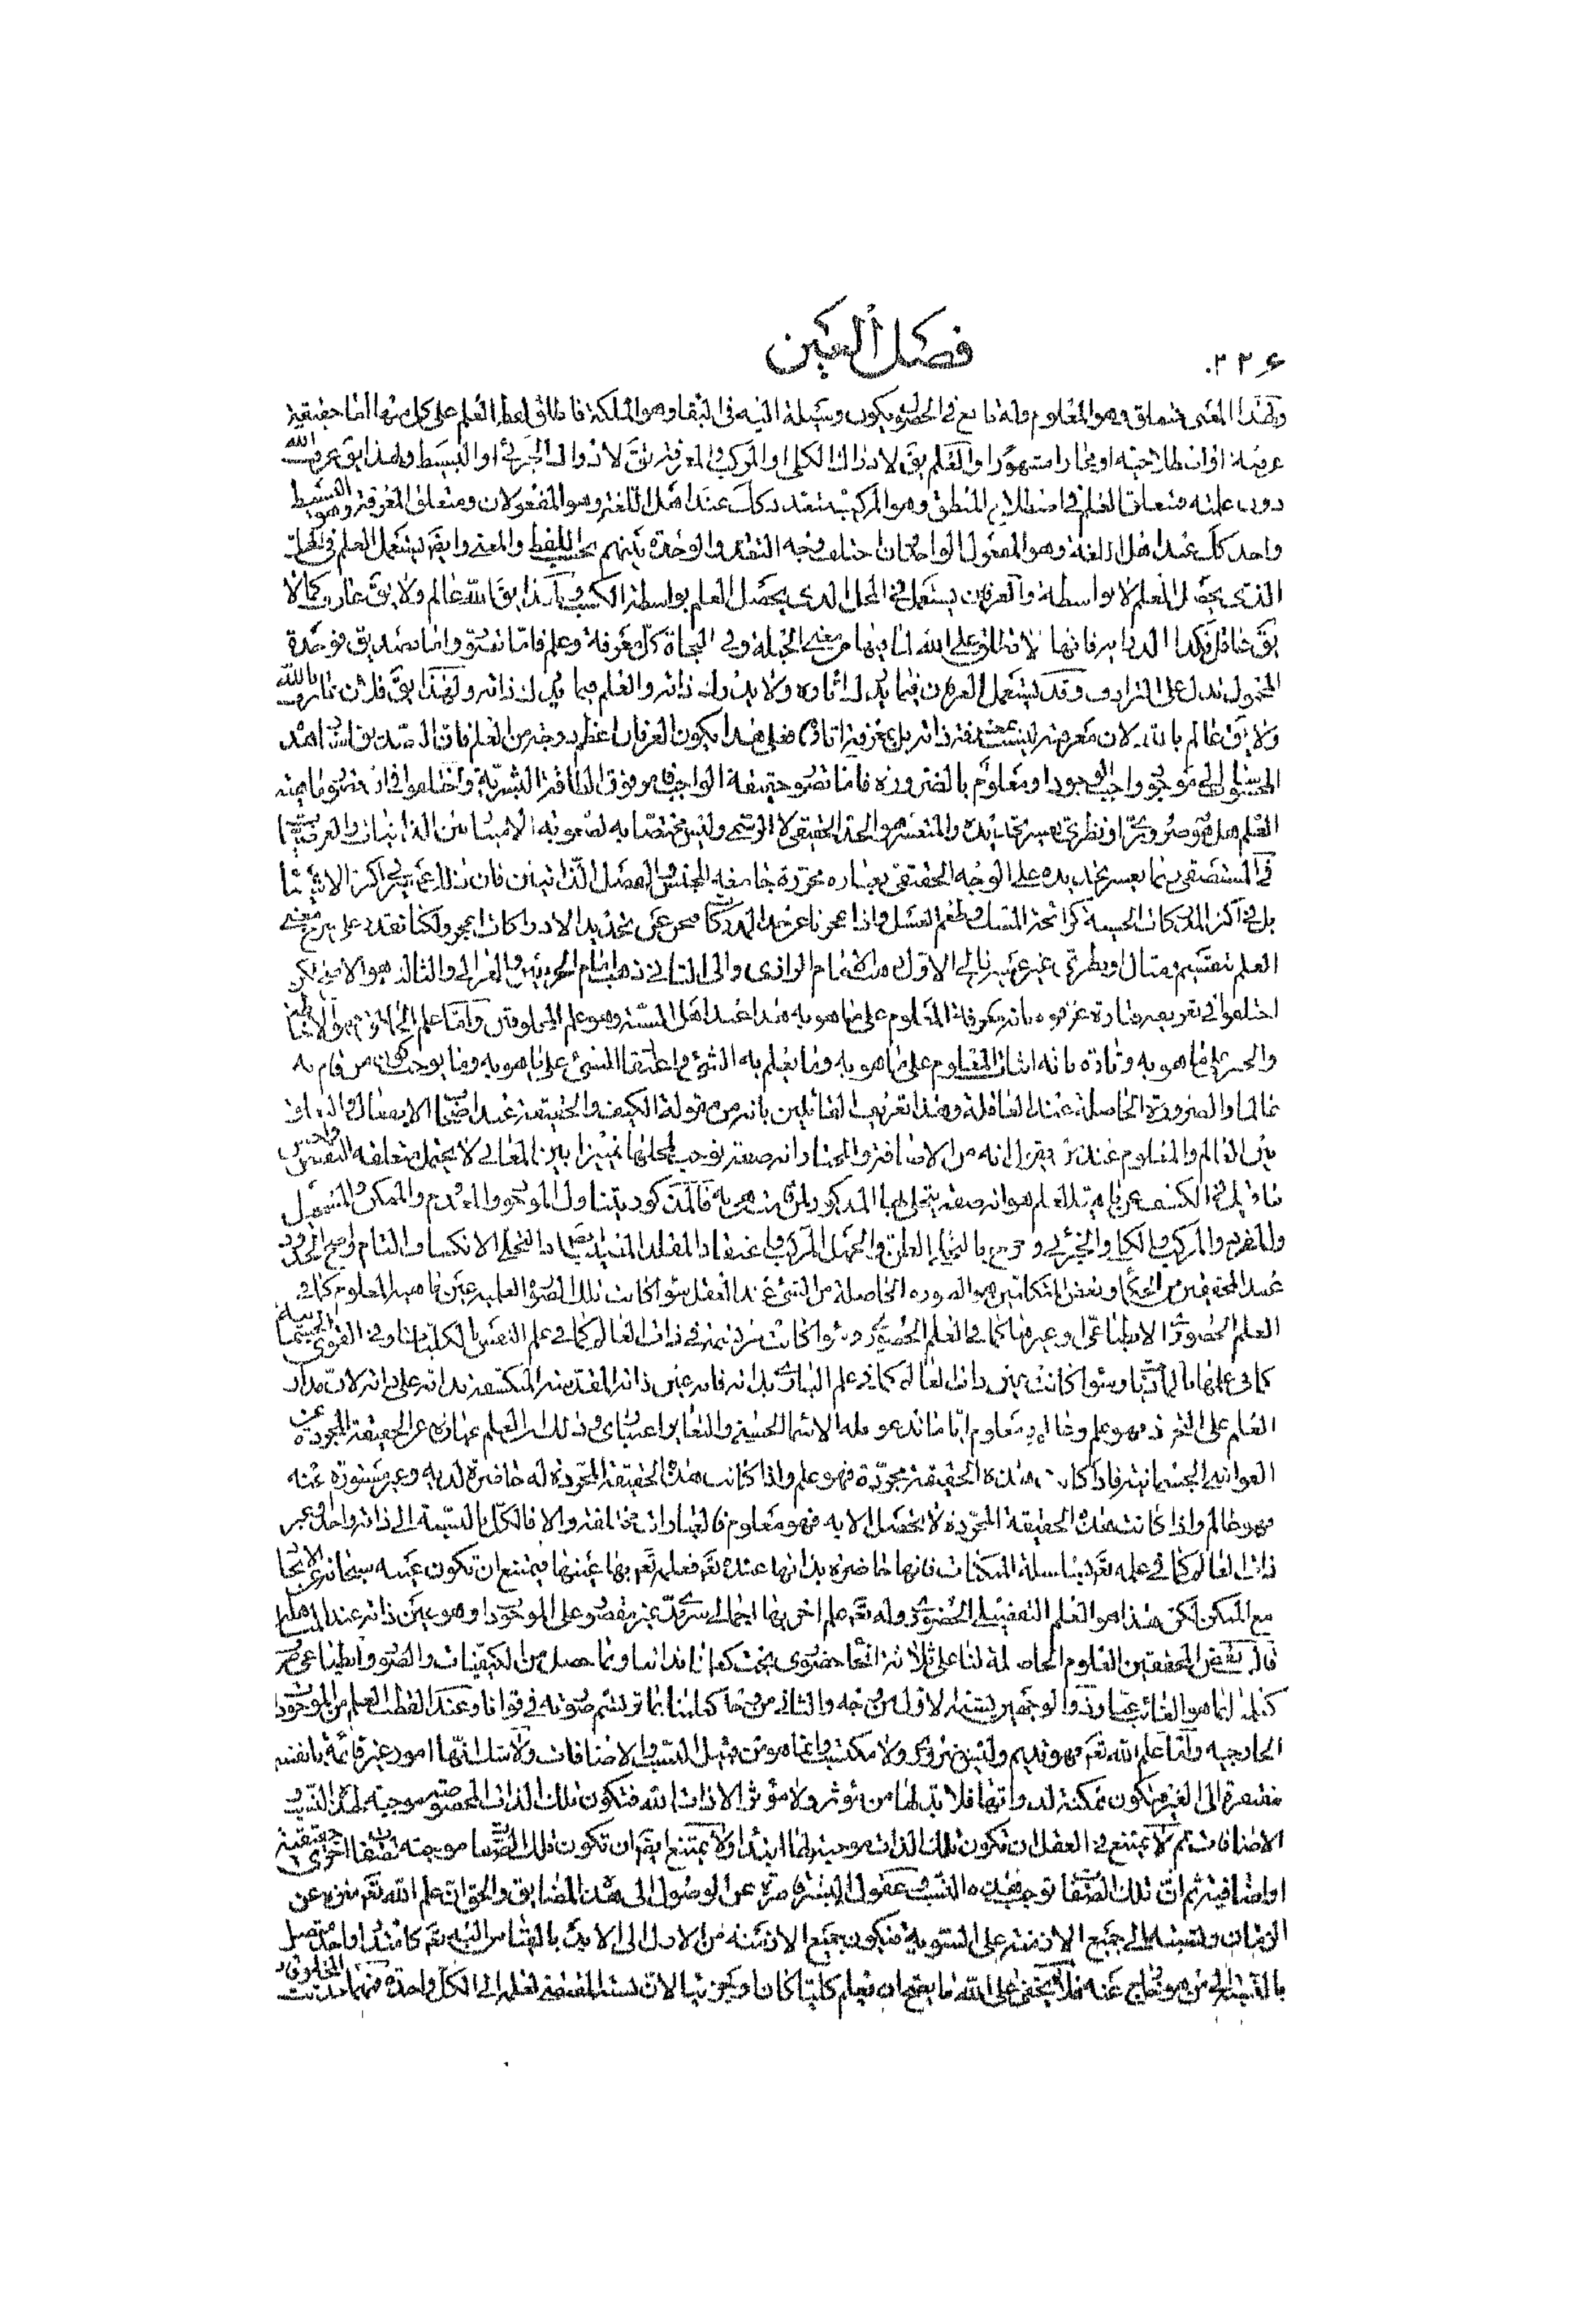 ٢٢٦
فصل العين
ولهذا المعنى متعلق وهو المعلوم وله تابع في الحصول يكون وسيلة اليه في البقا وهو الملكة فاطلاق لفظ العلم على كل منها اما حقيقة
عرفية او اصطلاحية او مجازا مشهورا والعلم يق لادراك الكلي او المركب والمعرفة تق لادراك الجزئي او البسيط ولهذا يق عرفت الله
دون علمته فمتعلق العلم في اصطلاح المنطق وهو المركب متعدد كك عند اهل اللغة وهو المفعولان ومتعلق المعرفة وهو البسيط
واحد كك عند اهل اللغة وهو المفعول الواحد وان اختلف وجه التعدد والوحدة بينهم بحسب اللفظ والمعنى وايضا يستعمل العلم في المحل
الذي يحصل العلم لا بواسطة والعرفان يستعمل في المحل الذي يحصل العلم بواسطة الكسب ولذا يق الله عالم ولا يق عارف كما لا
يق عاقل فكذا الدراية فانها لا تطلق على الله لما فيها من معنى الحيلة وفي النجاة كل معرفة وعلم فاما تصور واما تصديق فوحدة
المحمول تدل على الترادف وقد يستعمل العرفان فيما يدرك اثاره ولا يدرك ذاته والعلم فيما يدرك ذاته ولهذا يق فلان عارف بالله
ولا يق عالم بالله لان معرفته ليست بمعرفة ذاته بل بمعرفة اثاره فعلى هذا يكون العرفان اعظم درجة من العلم فان التصديق باستناد هذه
المحسوسات الى موجود واجب الوجود امر معلوم بالضرورة فاما تصور حقيقة الواجب فامر فوق الطاقة البشرية واختلفوا في ان تصور ماهية
العلم هل هو ضروري او نظري يعسر تحديده والمتعسر هو الحد الحقيقي لا الرسمي وليس مختصا به لصعوبة الامتياز بين الذاتيات والعرضيات
في المستصفى ربما يعسر تحديده على الوجه الحقيقي بعبارة محررة جامعة للجنس والفصل الذاتيين فان ذلك عسير في اكثر الاشياء
بل في اكثر المدركات الحسية كرائحة المسك وطعم العسل واذا عجزنا عن حد المدركات فنحن عن تحديد الادراكات اعجز ولكنا نقدر على شرح معنى
العلم بتقسيم ومثال او نظري غير عسير فالى الاول مال الامام الرازي والى الثاني ذهب امام الحرمين والغزالي والثالث هو الاصح لكن
اختلفوا في تعريفه فتارة عرفوه بانه معرفة المعلوم على ما هو به هذا عند اهل السنة وهو علم المخلوقين واما علم الخالق فهو الاحاطة
والخبر على ما هو به وتارة بانه اثبات المعلوم على ما هو به وما يعلم به الشئ واعتقاد الشئ على ما هو به وما يوجب كون من قام به
عالما والصورة الحاصلة عند العاقلة وهذا تعريف القائلين بانه من مقولة الكيف والحقيقة عند اصحاب الانفعال والاضافة
بين العالم والمعلوم عند من يقر الى انه من الاضافة والمختار انه صفة توجب لمحلها تمييزا بين المعاني لا يحتمل متعلقه النقيض واحسن
ما قيل في الكشف عن ماهية العلم هو انه صفة يتجلى بها المذكور لمن قامت هي به فالمذكور يتناول الموجود والمعدوم والممكن والمستحيل
والمفرد والمركب والكلي والجزئي وخرج بالتجلي الظن والجهل المركب واعتقاد المقلد المصيب اذ التجلي الانكشاف التام واصح الحدود
عند المحققين من الحكما وبعض المتكلمين هو الصورة الحاصلة من الشئ عند العقل سوا كانت تلك الصورة العلمية عين ماهية المعلوم كما في
العلم الحضوري الانطباعي او غيرها كما في العلم الحصولي وسوا كانت مرتسمة في ذات العالم كما في علم النفس بالكليات او في القوى الجسمانية
كما في علمها بالماديات وسوا كانت عين ذات العالم كما في علم الباري بذاته فانه عين ذاته المقدسة المنكشفة بذاته على ذاته لان مدار
العلم على التجرد فهو علم وعالم ومعلوم ايا ما تدعو فله الاسما الحسنى والتغاير اعتباري وذلك ان العلم عبارة عن الحقيقة المجردة عن
الغواشي الجسمانية فاذا كانت هذه الحقيقة مجردة فهو علم واذا كانت هذه الحقيقة المجردة له حاضرة لديه وغير مستورة عنه
فهو عالم واذا كانت هذه الحقيقة المجردة لا تحصل الا به فهو معلوم فالعبارات مختلفة والا فالكل بالنسبة الى ذاته واحد وغير
ذات العالم كما في علمه تعالى بسلسلة الممكنات فانها حاضرة بذاتها عنده تعالى فعلمه تعالى بها عينها فيمتنع ان تكون عينه سبحانه عن الاتحاد
مع الممكن لكن هذا هو العلم التفصيلي الحضوري وله تعالى علم اخر بها اجمالي سرمدي غير مقصور على الموجود وهو عين ذاته عند المحققين
قال بعض المحققين العلوم الحاصلة لنا على ثلاثة انحا حضوري بحت كعلمنا بذاتنا وبما حصل من الكيفيات والصور وانطباعي صرف
كعلمنا بما هو الغائب عنا وذو الوجهين يشبه الاول من وجه والثاني من وجه كعلمنا بما ترتسم صورته في قوانا وعند القطب العلم من الموجودات
الخارجية واما علم الله تعالى فهو قديم وليس ضروري ولا مكتسب وانما هو من قبيل النسب والاضافات ولا شك انها امور غير قائمة بانفسها
مفتقرة الى الغير فتكون ممكنة لذواتها فلا بد لها من مؤثر ولا مؤثر الا ذات الله فتكون تلك الذات المخصوصة موجبة لهذه النسب
الاضافات ثم لا يمتنع في العقل ان تكون تلك الذات موجبة لها ابتدا ولا يمتنع ايضا ان تكون تلك الصفات موجبة لصفات اخرى حقيقية
او اضافية ثم ان تلك الصفات توجب هذه النسب وعقول البشر قاصرة عن الوصول الى هذه المضايق والحق ان علم الله تعالى منزه عن
الزمان ونسبته الى جميع الازمنة على السوية فيكون جميع الازمنة من الازل الى الابد بالقياس اليه تعالى كامتداد واحد متصل
بالنسبة الى من هو خارج عنه فلا يخفى على الله ما يصح ان يعلم كليا كان او جزئيا لان نسبة المقتضي لعلمه الى الكل واحدة فمهما حدثت المخلوقات